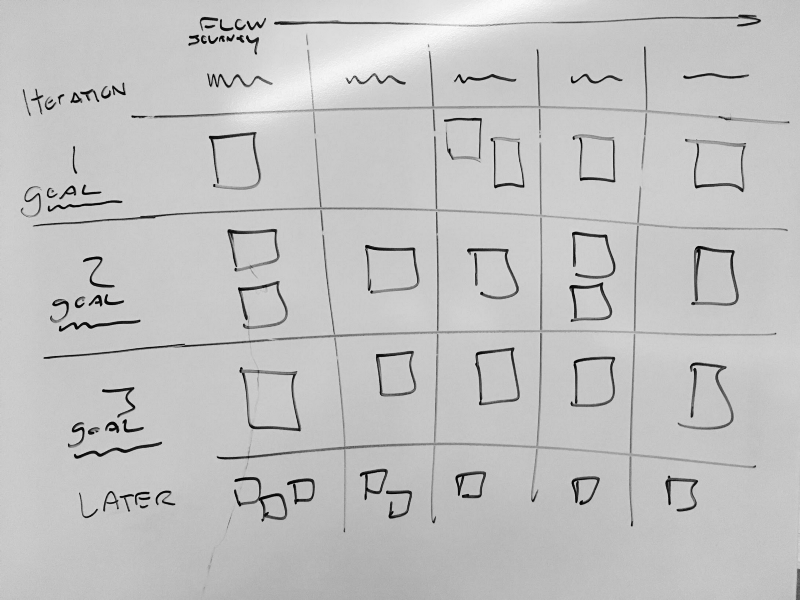 FLOW
JOURNEY
ITERATION
1
gOAL
2
gOAL
3
gOAL
LATER